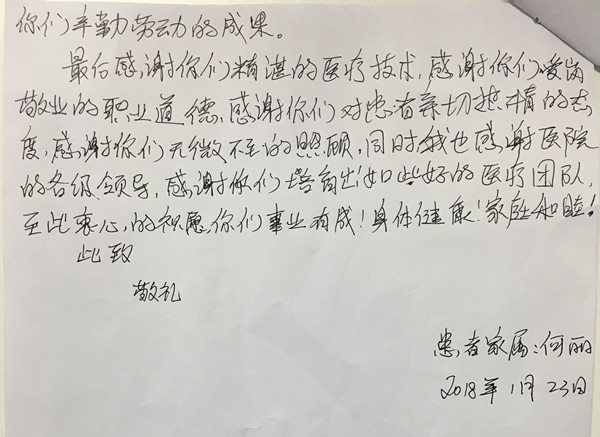 你们辛勤劳动的成果。
最后感谢你们精湛的医疗技术，感谢你们爱岗
敬业的职业道德，感谢你们对患者亲切热情的态
度，感谢你们无微不至的照顾，同时我也感谢医院
的各级领导，感谢你们培育出如此好的医疗团队，
至此衷心的祝愿你们事业有成！身体健康！家庭和睦！
此致
敬礼
患者家属：何丽
2018年11月23日